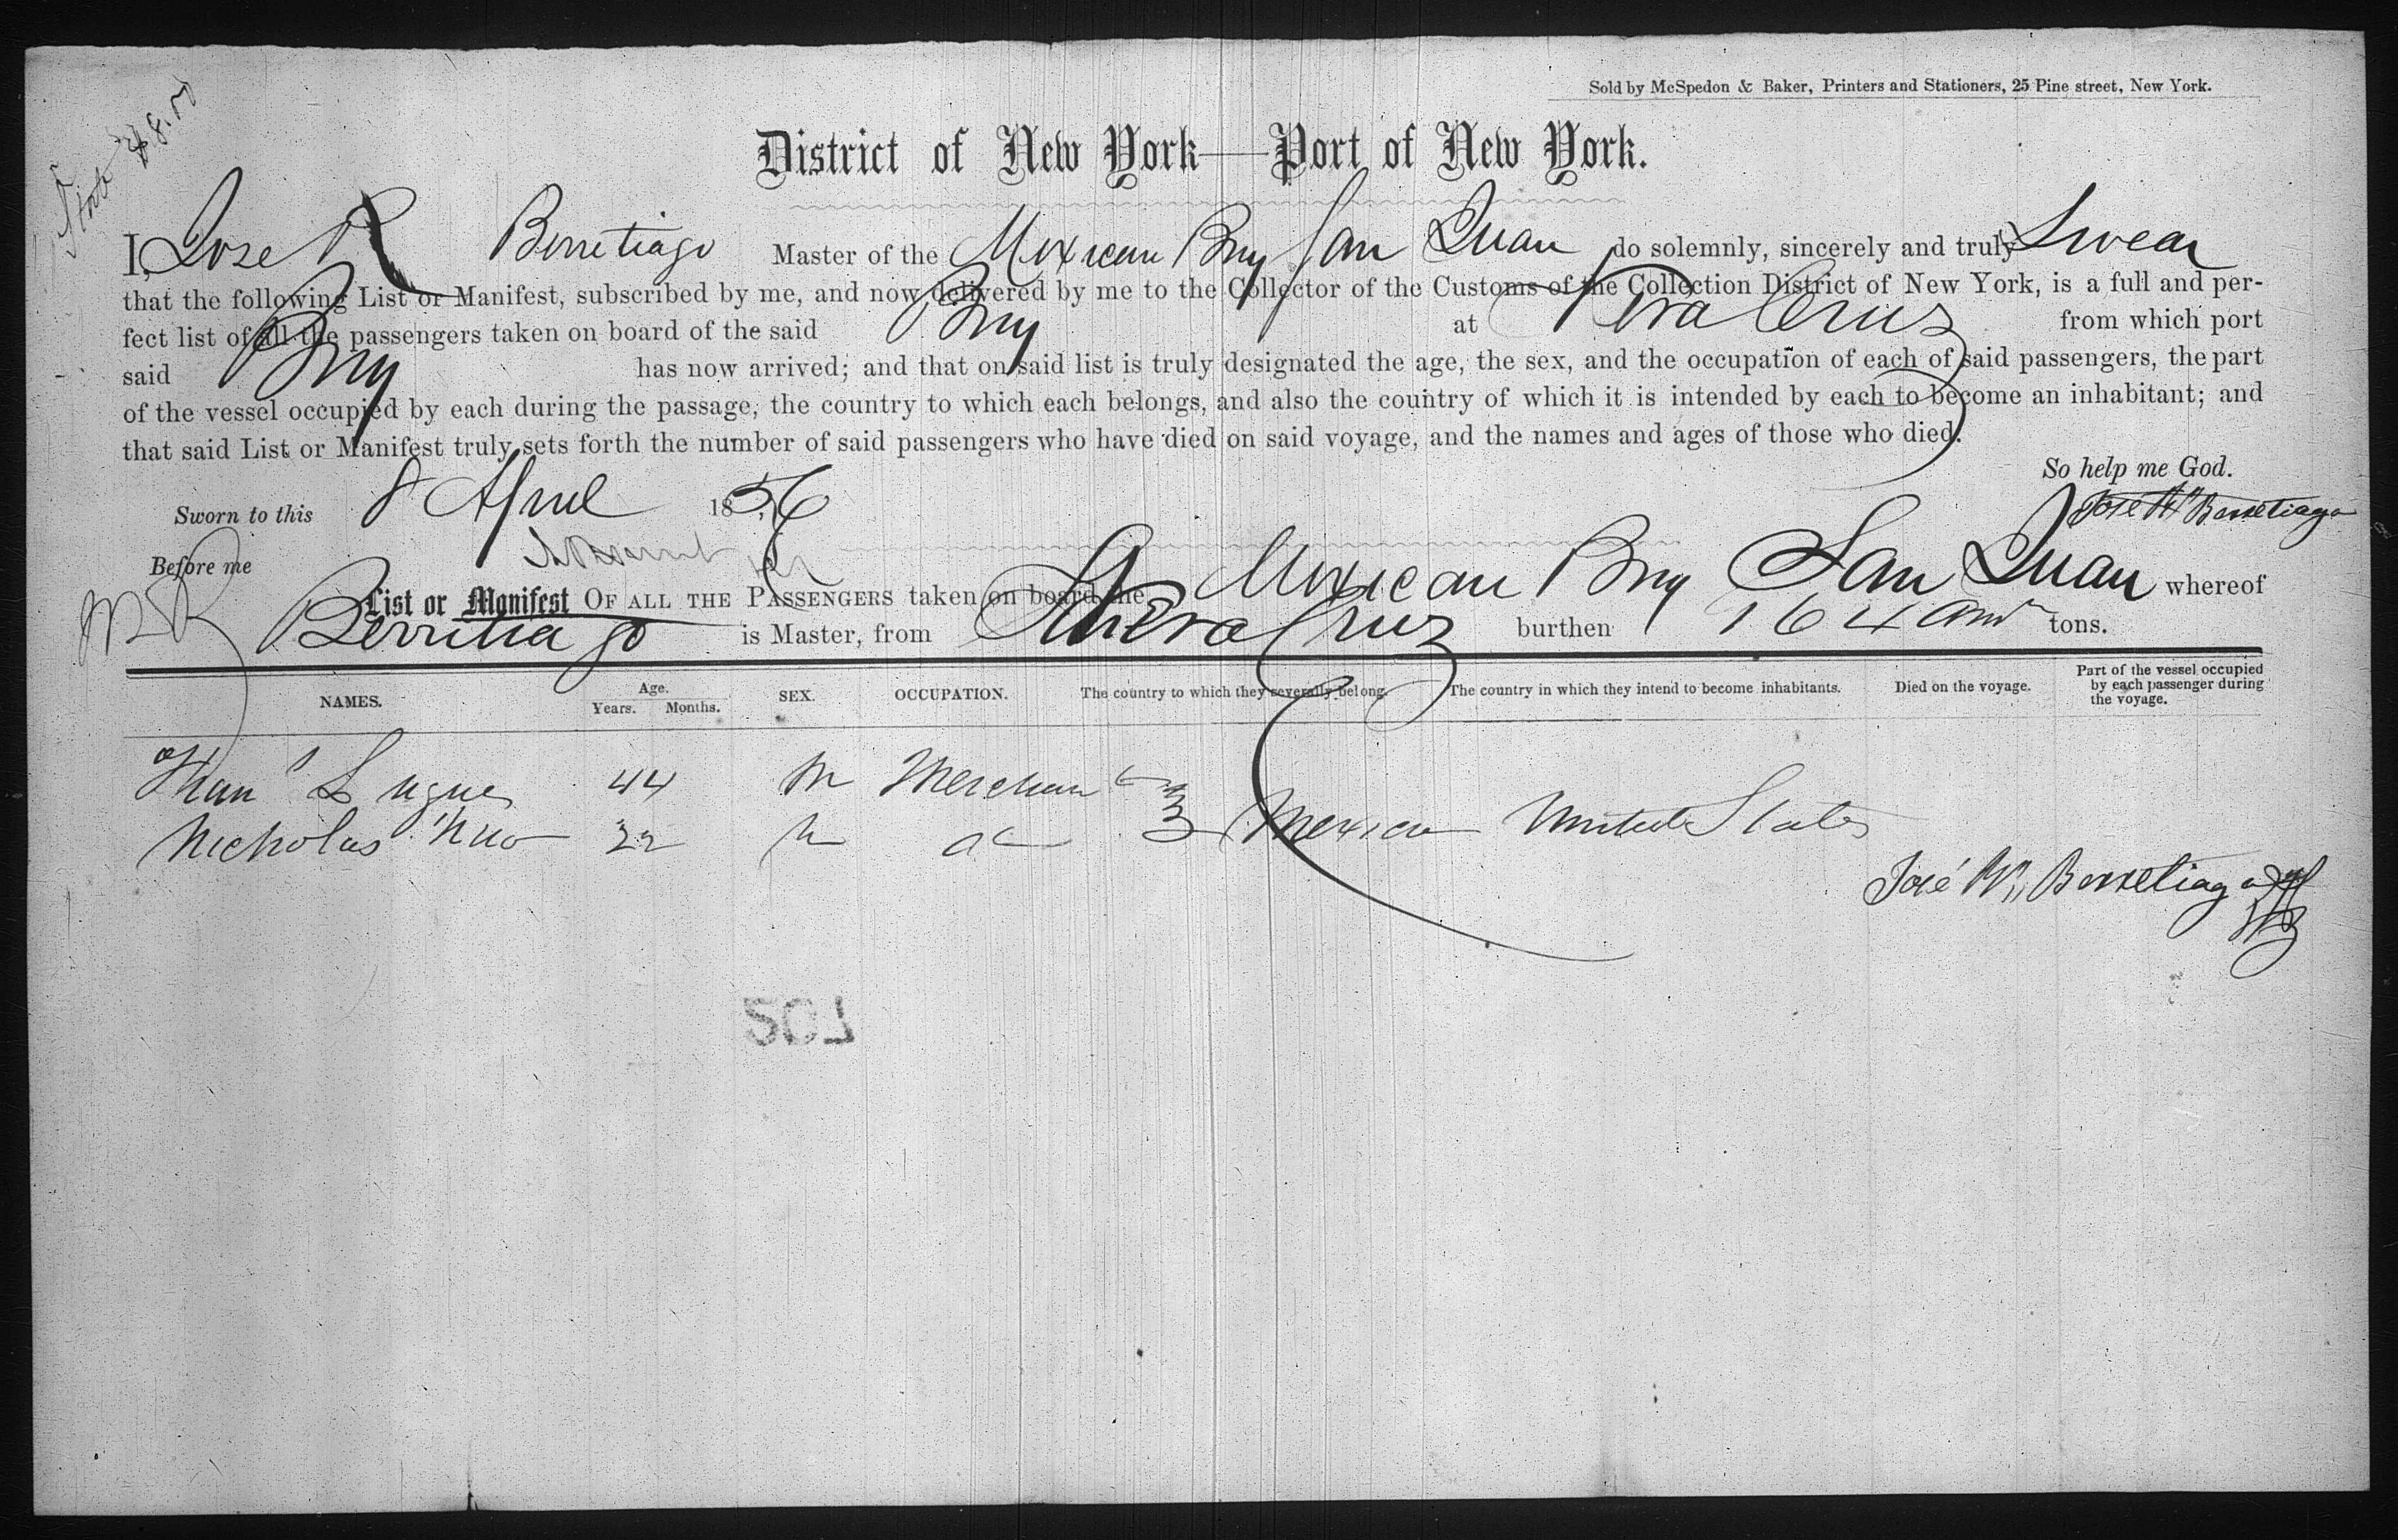 Sold by McSpedon & Baker, Printers and Stationers, 25 Pine street, New York.
District of New York—Port of New York.
I, Jose R Berretiago Master of the Mexican Brig San Juan do solemnly, sincerely and truly Swear
that the following List or Manifest, subscribed by me, and now delivered by me to the Collector of the Customs of the Collection District of New York, is a full and per-
fect list of all the passengers taken on board of the said Brig at Vera Cruz from which port
said Brig has now arrived; and that on said list is truly designated the age, the sex, and the occupation of each of said passengers, the part
of the vessel occupied by each during the passage, the country to which each belongs, and also the country of which it is intended by each to become an inhabitant; and
that said List or Manifest truly sets forth the number of said passengers who have died on said voyage, and the names and ages of those who died.
So help me God.
Sworn to this 8 April 1856
José Berretiaga
Before me
List or Manifest OF ALL THE PASSENGERS taken on board the Mexican Brig San Juan whereof
Berritiago is Master, from Vera Cruz burthen 164 tons.
NAMES. Age. Years. Months. SEX. OCCUPATION. The country to which they severally belong. The country in which they intend to become inhabitants. Died on the voyage. Part of the vessel occupied by each passenger during the voyage.
44 M Merchant
Nicholas 22 Mexico United States
José Berretiaga